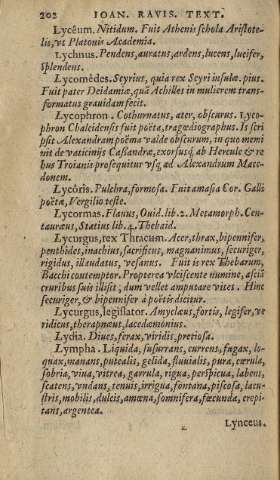 202 IOAN. RAVIS. TEXT.
Lycēum. Nitidum. Fuit Athenis schola Aristote-
lis, vt Platonis Academia.
Lychnus. Pendens, auratus, ardens, lucens, lucifer,
splendens.
Lycomēdes. Scyrius, quia rex Scyri insulæ. pius.
Fuit pater Deidamiæ, quā Achilles in mulierem trans-
formatus grauidam fecit.
Lycophron. Cothurnatus, ater, obscurus. Lyco-
phron Chalcidensis fuit poëta, tragœdiographus. Is scri
psit Alexandram poëma valde obscurum, in quo memi
nit de vaticinijs Cassandræ, exorsusq́; ab Hercule & re
bus Troianis prosequitur vsq; ad Alexandrum Mace-
donem.
Lycōris. Pulchra, formosa. Fuit amasia Cor. Galli
poëtæ, Vergilio teste.
Lycormas. Flauus, Ouid. lib. 2. Metamorph. Cen-
tauræus, Statius lib. 4. Thebaid.
Lycurgus, rex Thracum. Acer, thrax, bipennifer,
penthides, inachius, sacrificus, magnanimus, securiger,
rigidus, illaudatus, vesanus. Fuit is rex Thebarum,
Bacchi contemptor. Propterea vlciscente numine, asciā
cruribus suis illisit, dum vellet amputare vites. Hinc
securiger, & bipennifer à poëtis dicitur.
Lycurgus, legislator. Amyclæus, fortis, legifer, ve
ridicus, therapnæus, lacedæmonius.
Lydia. Diues, ferax, viridis, pretiosa.
Lympha. Liquida, susurrans, currens, fugax, lo-
quax, manans, putealis, gelida, fluuialis, pura, cærula,
sobria, viua, vitrea, garrula, rigua, perspicua, labens,
scatens, vndans, tenuis, irrigua, fontana, piscosa, lacu-
stris, mobilis, dulcis, amœna, somnifera, fœcunda, crepi-
tans, argentea.
Lynceus.